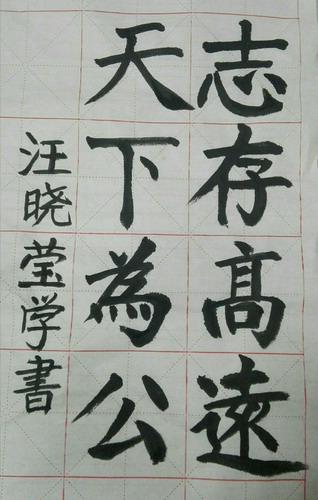 志存髙遠
天下為公
汪晓莹学書